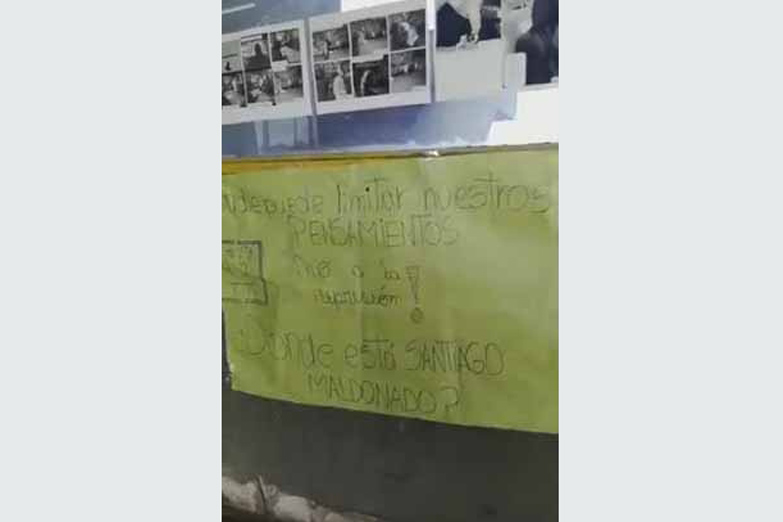 puede limitar nuestros
PENSAMIENTOS
no a la
represión!
Donde está SANTIAGO
MALDONADO?